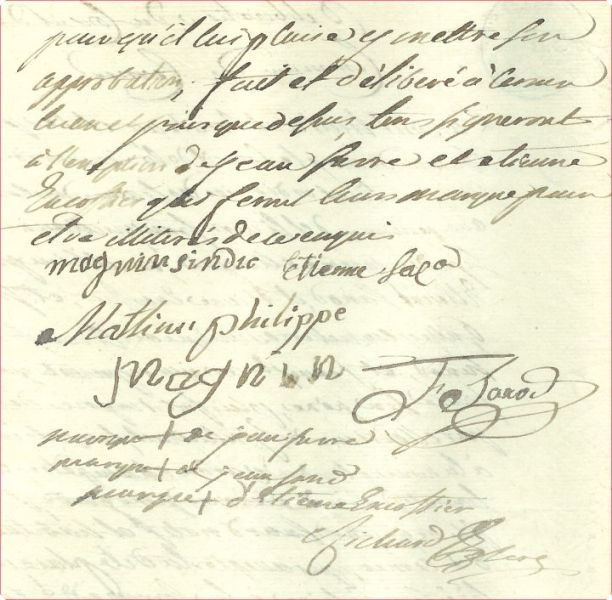 pour qu'il lui plaise y mettre son
approbation, fait et déliberé à Cessen
lieu et jour que dessus tous signeront
à l'exeption de Jean serre et etienne
Encottier qui feront leurs marque pour
etre illitirés de ce enquis
magnin sindic etienne
Mathieu philippe
magnin
marque + de jean serre
marque + de jean
marque + d'etienne Encottier
Richard